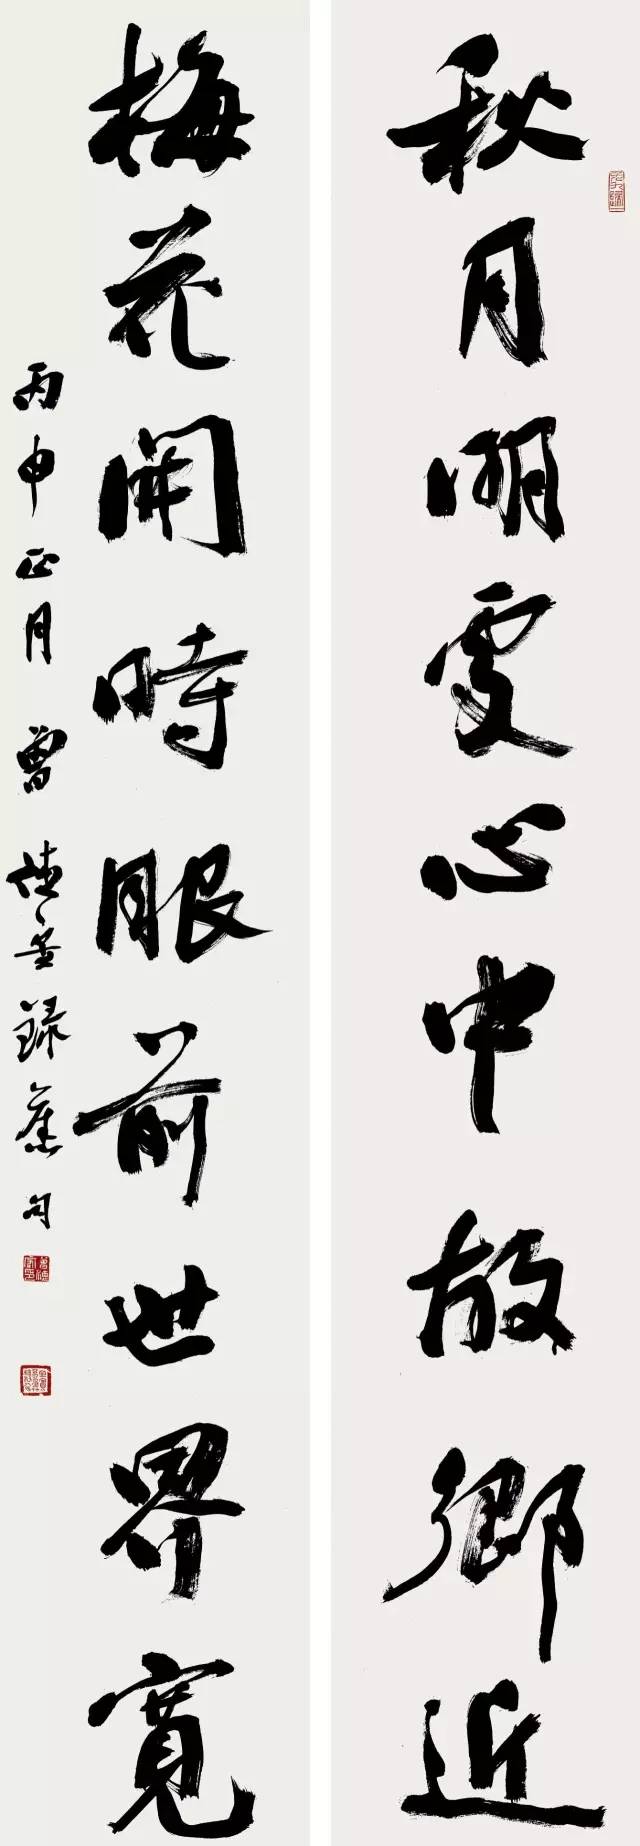 秋月明處心中故鄉近
梅花開時眼前世界寬
丙申正月曾錄舊句